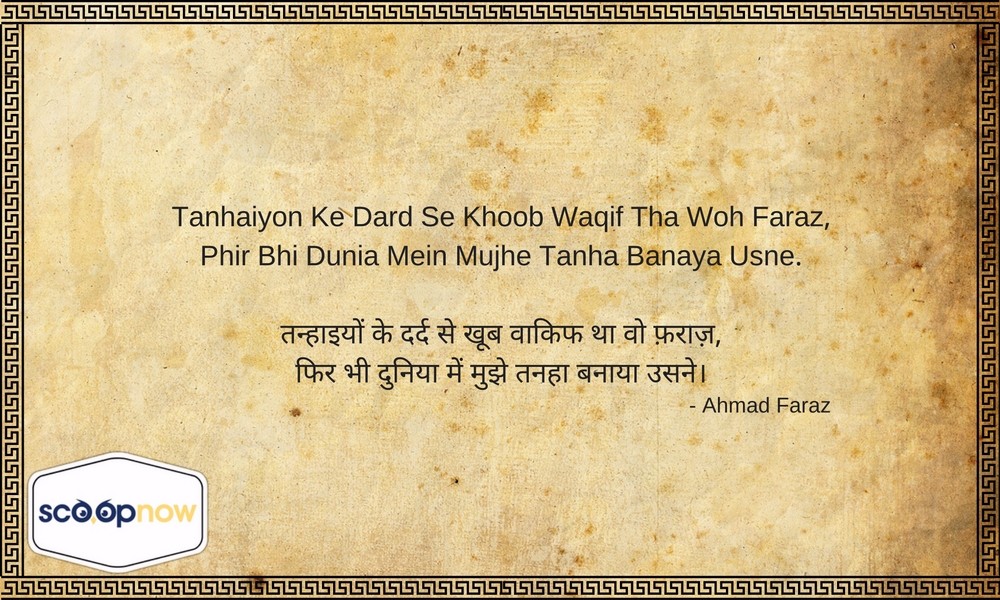 Tanhaiyon Ke Dard Se Khoob Waqif Tha Woh Faraz,
Phir Bhi Dunia Mein Mujhe Tanha Banaya Usne.
तन्हाइयों के दर्द से खूब वाकिफ था वो फ़राज़,
फिर भी दुनिया में मुझे तनहा बनाया उसने।
- Ahmad Faraz
scoopnow